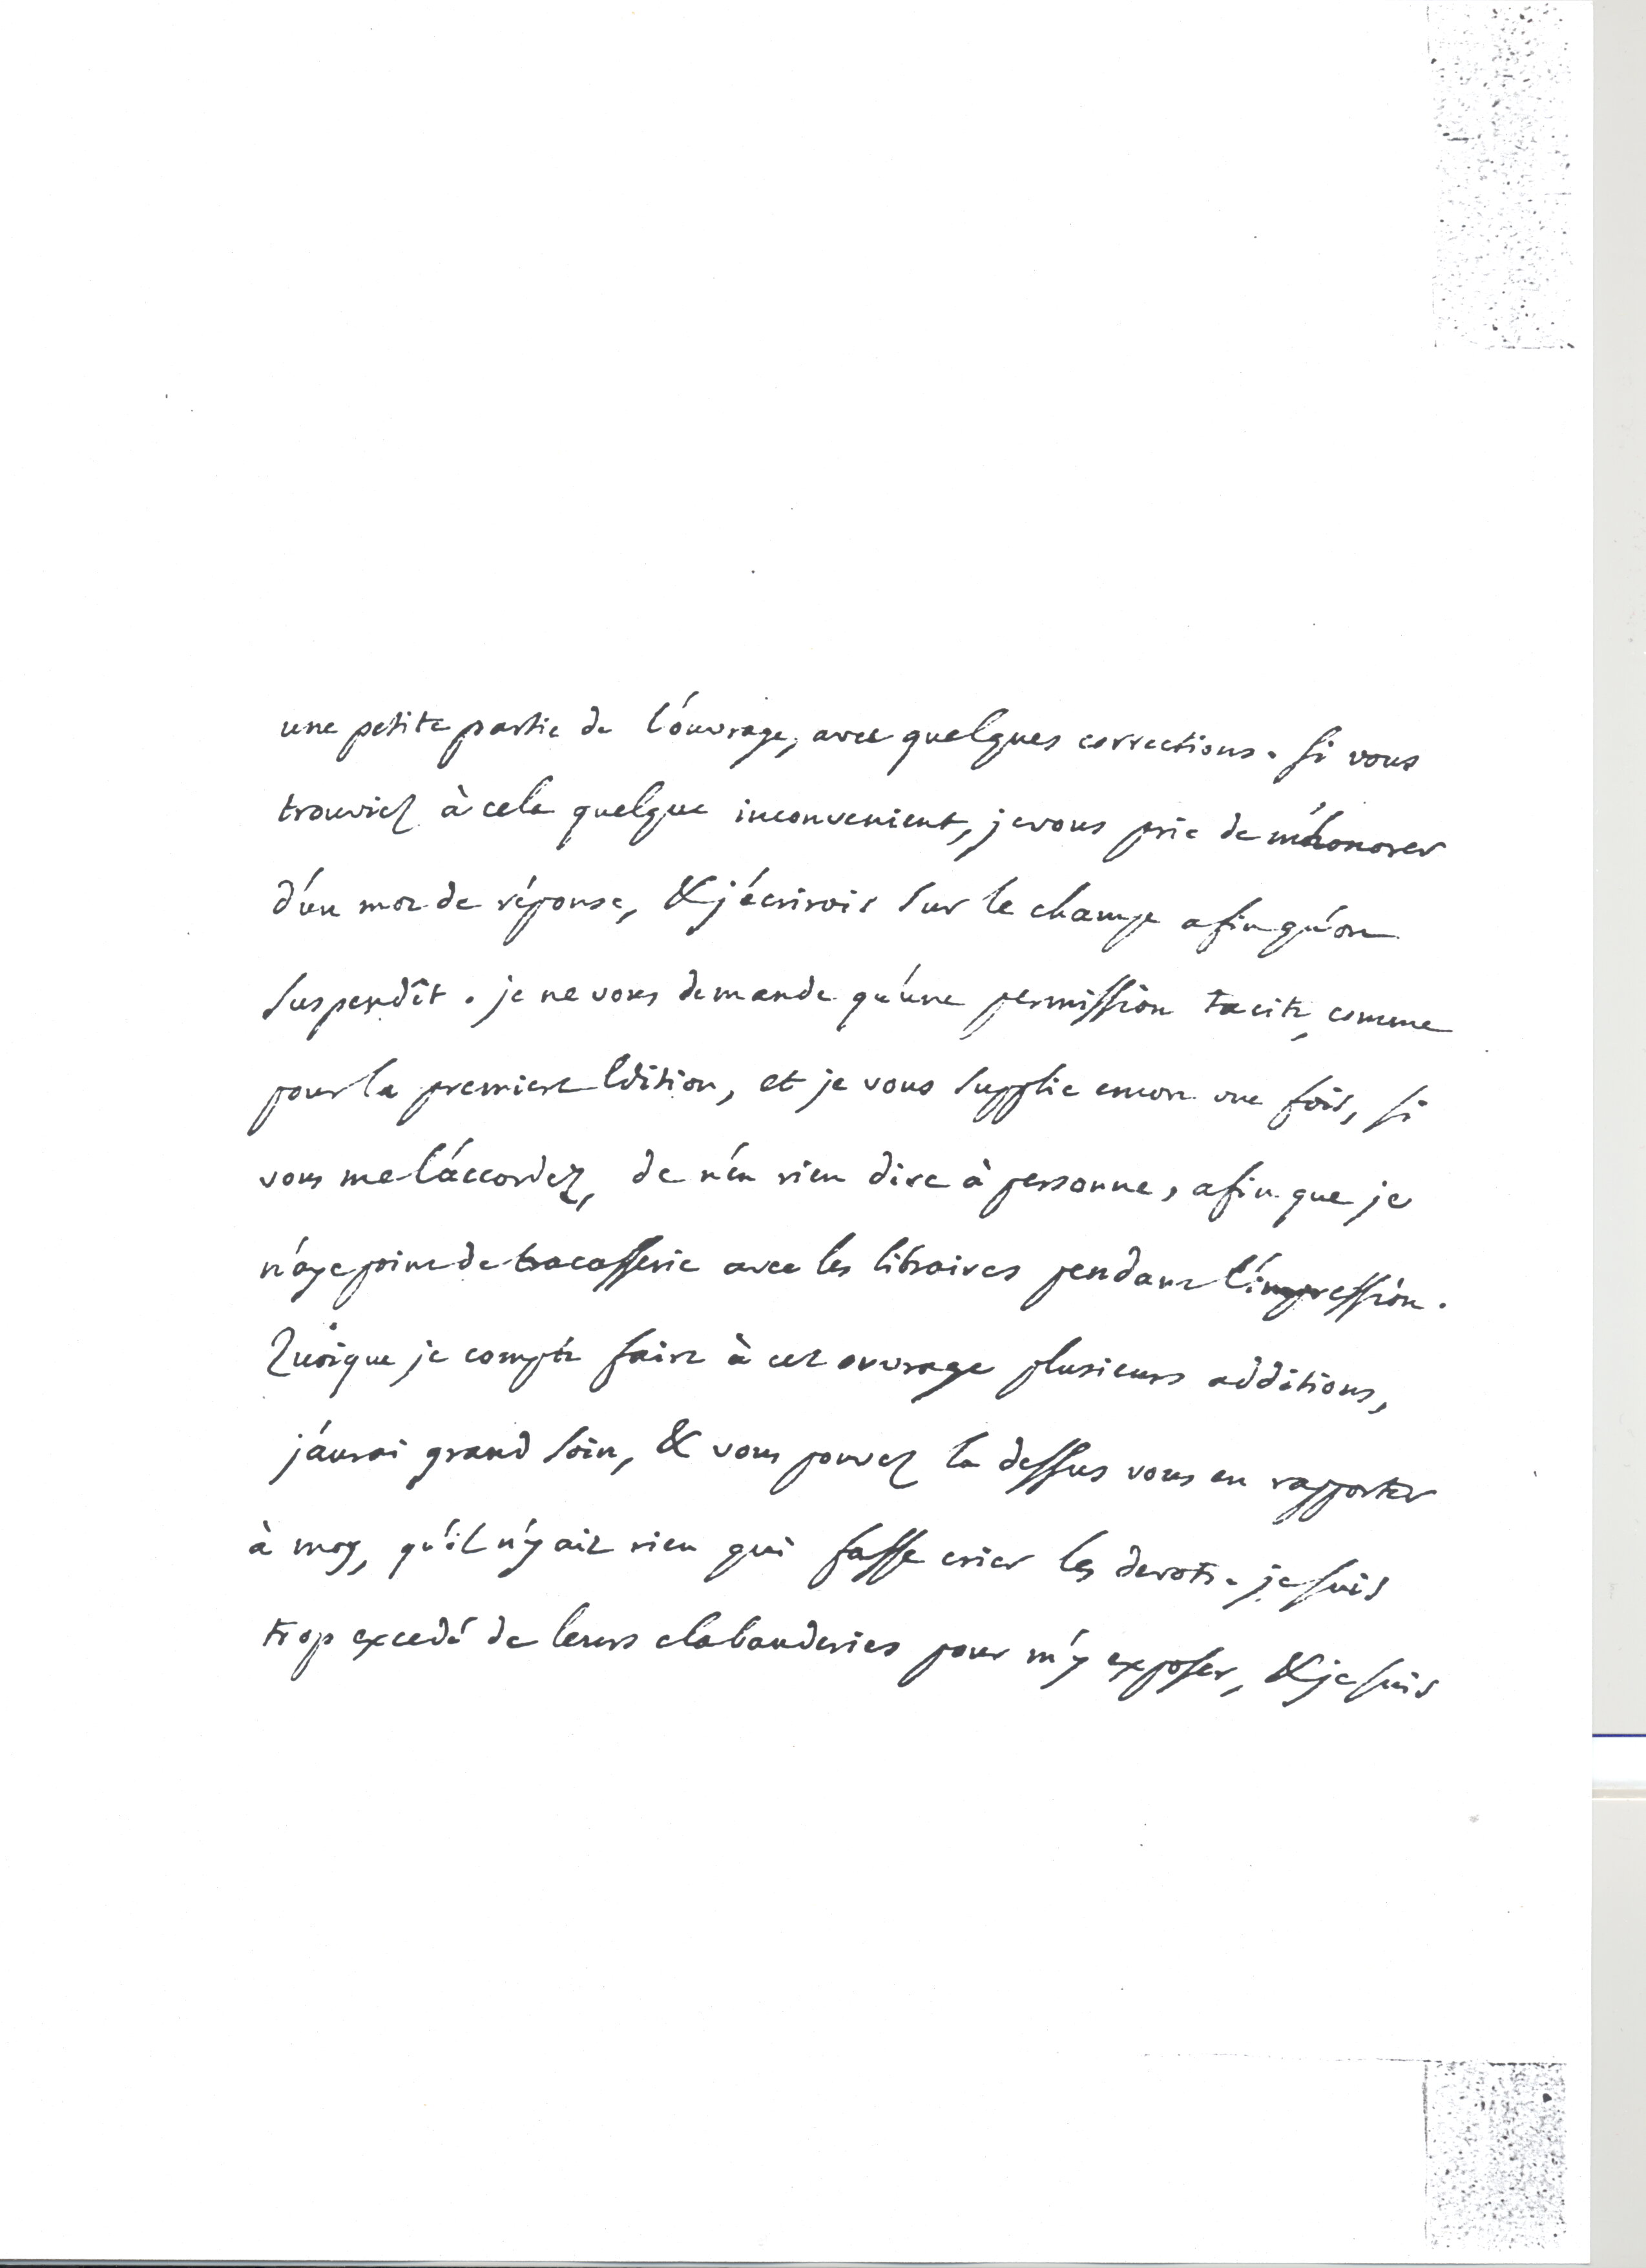 une petite partie de l'ouvrage, avec quelques corrections. si vous
trouviez à cela quelque inconvenient, je vous prie de m'honorer
d'un mot de réponse, & j'écrirois sur le champ afin qu'on
suspendît. je ne vous demande qu'une permission tacite, comme
pour la premiere Edition, et je vous supplie encore une fois, si
vous me l'accordez, de n'en rien dire à personne, afin que je
n'aye point de tracasserie avec les libraires pendant l'impression.
Quoique je compte faire à cet ouvrage plusieurs additions,
j'aurai grand soin, & vous pouvez la dessus vous en rapporter
à moy, qu'il n'y ait rien qui fasse crier les devots. je suis
trop excedé de leurs clabauderies pour m'y exposer, & je suis